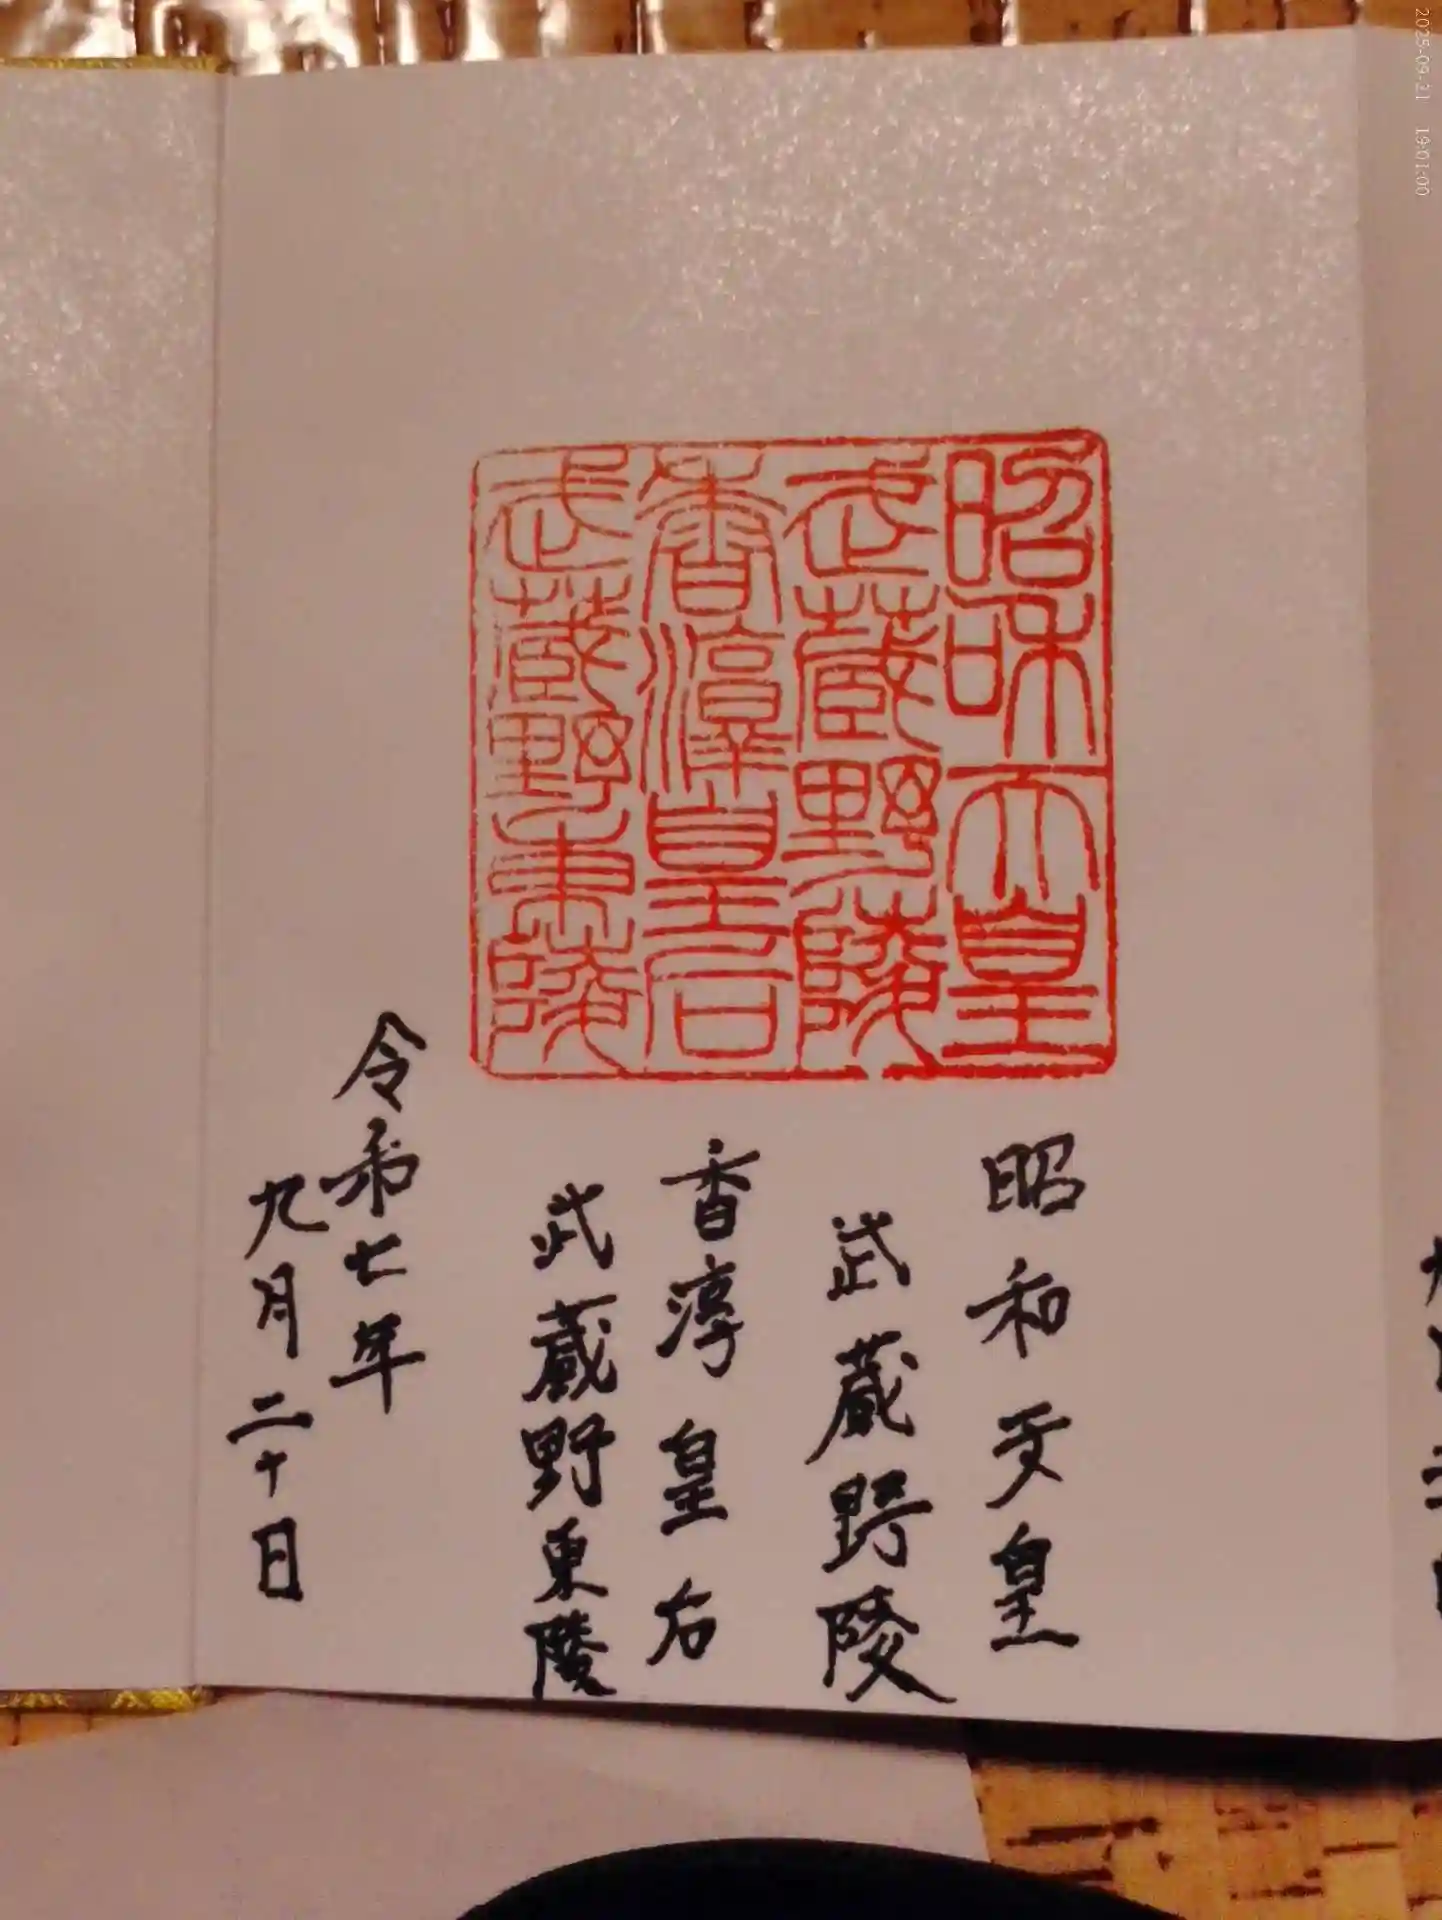 昭和天皇
武蔵野陵
香淳皇后
武蔵野東陵
昭和天皇
武蔵野陵
香淳皇后
武蔵野東陵
令和七年
九月二十日
2025-09-21 19:01:00